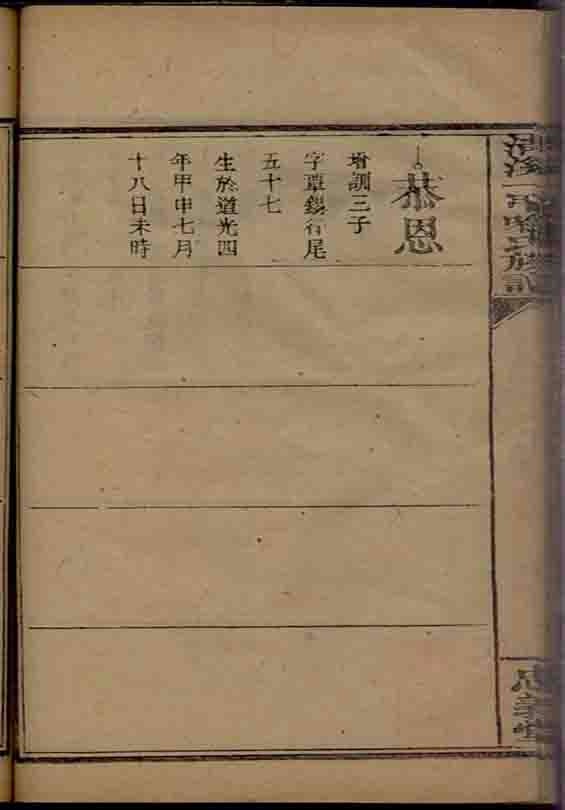 恭恩
增訓三子
字覃錫行尾
五十七
生於道光四
年甲申七月
十八日未時
忠義堂